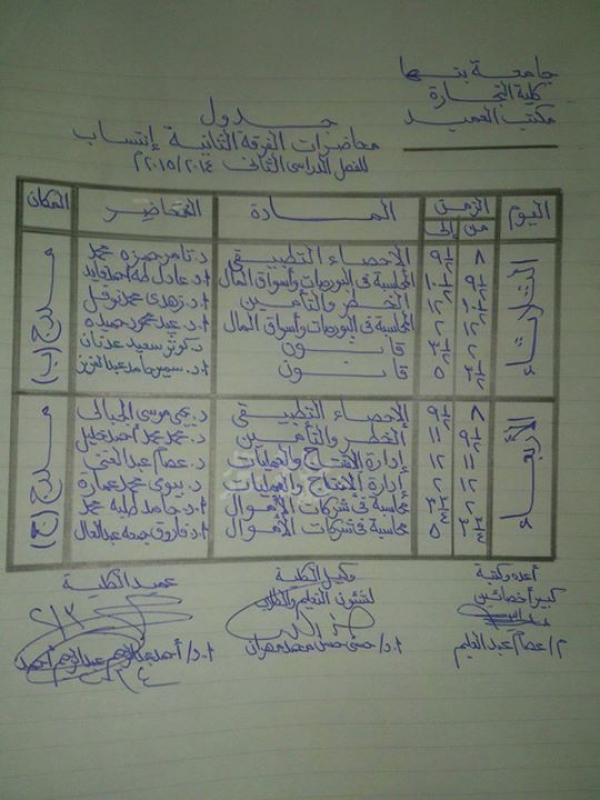 جامعة بنها
كلية التجارة
مكتب العميد
جدول
محاضرات الفرقة الثانية إنتساب
للفصل الدراسى الثانى ٢٠١٥/٢٠١٤
اليوم الزمن المادة المحاضر المكان
من إلى
الثلاثاء
٨ ٩½ الإحصاء التطبيقى د. تامر حمزه محمد
٩½ ١٠½ المحاسبة فى البورصات وأسواق المال أ.د. عادل طه أحمد فايد
١٠½ ١٢ الخطر والتأمين أ.د. زهدى محمد نوفل
١٢ ٢ المحاسبة فى البورصات وأسواق المال أ.د. عيد محمود حميده
٢ ٣½ قانون د. كوثر سعيد عدنان
٣½ ٥ قانون أ.د. سمير حامد عبدالعزيز
مدرج (ب)
الأربعاء
٨ ٩½ الإحصاء التطبيقى د. يحيى موسى الجبالى
٩½ ١١ الخطر والتأمين د. محمد محمد أحمد خليل
١١ ١٢ إدارة الإنتاج والعمليات د. عصام عبدالغنى
١٢ ٢ إدارة الإنتاج والعمليات د. بيومى محمد عمارة
٢ ٣¾ محاسبة فى شركات الأموال أ.د. حامد طلبه محمد
٣¾ ٥ محاسبة فى شركات الأموال أ.د. فاروق جمعه عبدالعال
مدرج (ج)
أعده وكتبة وكيل الكلية عميد الكلية
كبير أخصائيين لشئون التعليم والطلاب
م/ عصام عبدالعليم أ.د/ حسنى حسن محمد مهران أ.د/ أحمد عبدالرحيم أحمد